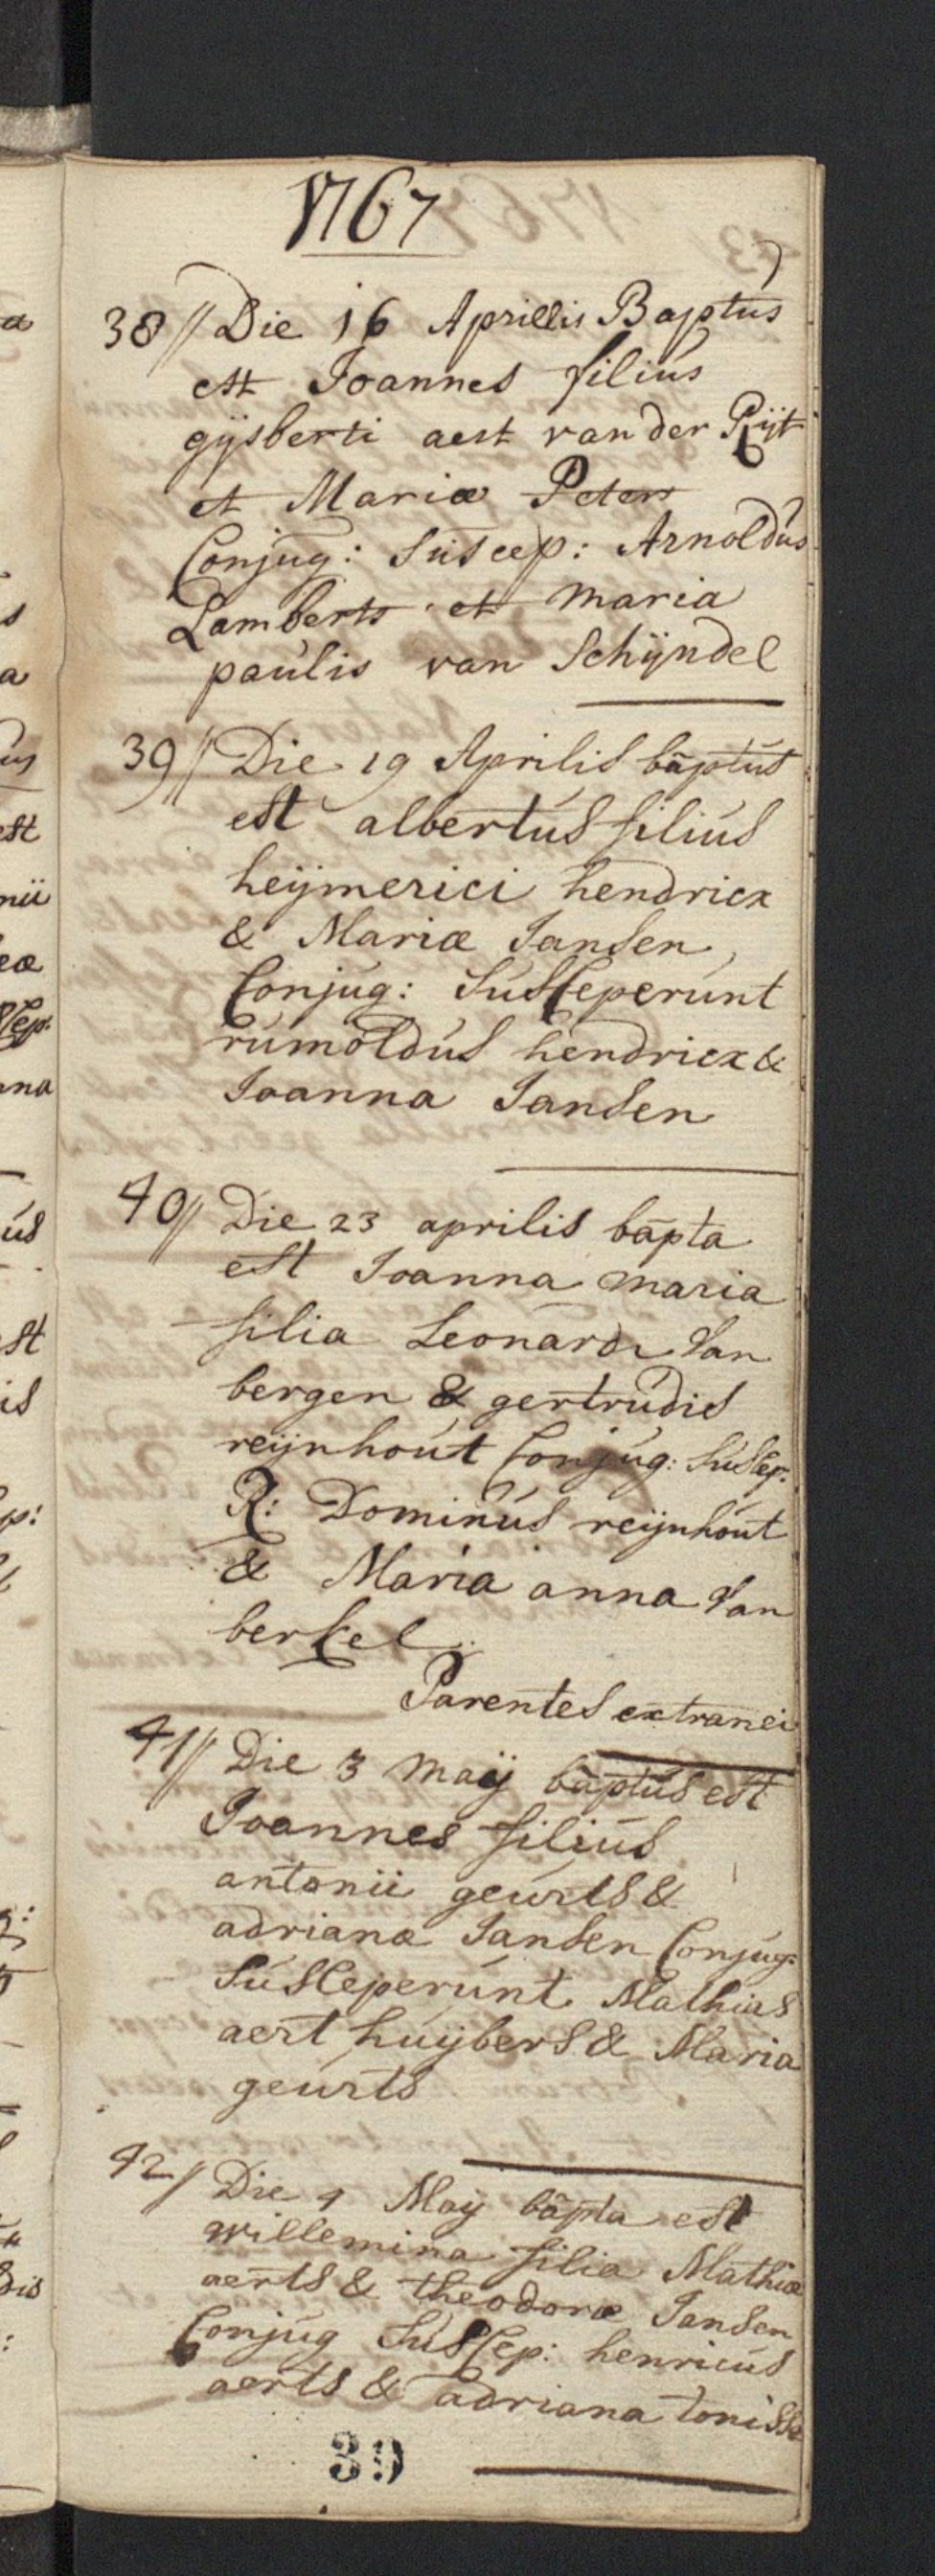 1767
38 // Die 16 Aprillis Baptus
est Joannes filius
gijsberti aert van der Rijt
et Mariæ Peters
Conjug: Suscep: Arnoldus
Lamberts et Maria
paulis van Schijndel
39 // Die 19 Aprilis baptus
est albertus filius
heijmerici hendricx
& Mariæ Jansen,
Conjug: Susceperunt
rumoldus hendricx &
Joanna Jansen
40 // Die 23 aprilis bapta
est Joanna maria
filia Leonardi Van
bergen & gertrudis
reijnhout Conjug: Suscep:
R: Dominus reijnhout
& Maria anna Van
berkel.
Parentes extranei
41 // Die 3 maij baptus est
Joannes filius
antonii geurts &
adrianæ Jansen Conjug:
Susceperunt Mathias
aert huijbers & Maria
geurts
42 // Die 9 Maij bapta est
willemina filia Mathiæ
aerts & theodoræ Jansen
Conjug Suscep: henricus
aerts & adriana tonisse
39